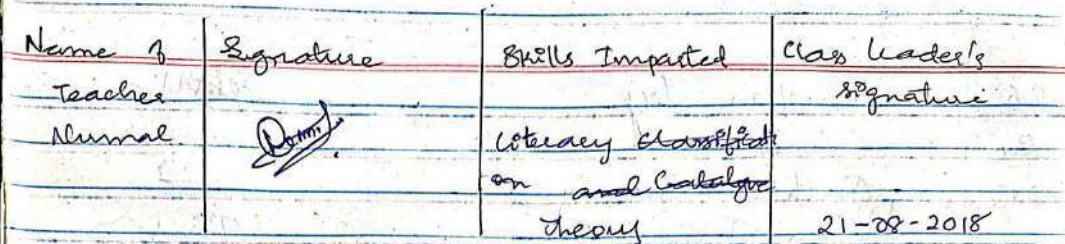 Name of Signature Skills Imparted Class Leader's
Teacher signature
Nirmal. Literacy Classificati
on and Catalogue
theory 21-08-2018